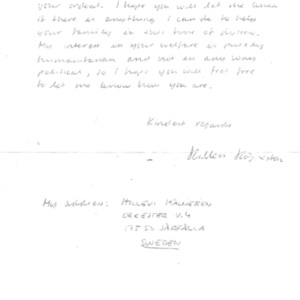 your ordeal. I hope you will let me know
if there is anything I can do to help
your family in this time of
My interest in your welfare is purely
humanitarian and not in any way
political, so I hope you will feel free
to let me know how you are.
Kindest regards
My address:
V. 4
SWEDEN